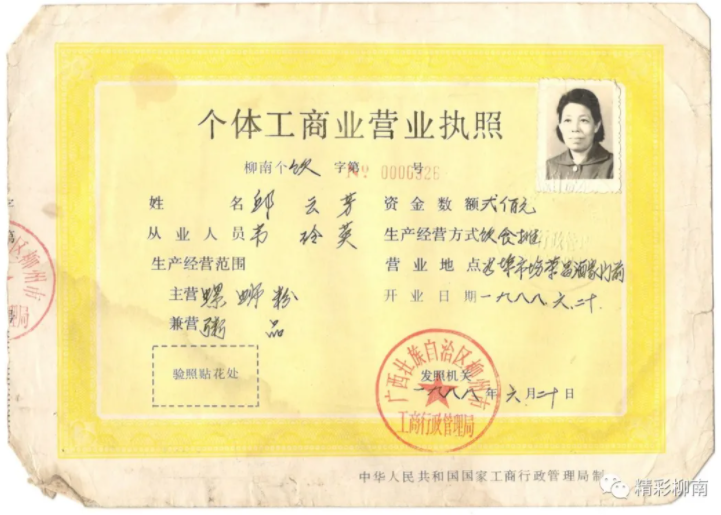 个体工商业营业执照
柳南个饮 字第 № 0000326 号
姓 名 邱云芳 资金数额 弍佰元
从业人员 韦玲英 生产经营方式 饮食摊
生产经营范围 营业地点 市场菜品酒家门前
主营 螺蛳粉 开业日期 一九八八.六.二十.
兼营 粥品
验照贴花处
发照机关
一九八八年六月二十日
广西壮族自治区柳州市
工商行政管理局
区柳州市
中华人民共和国国家工商行政管理局制
精彩柳南